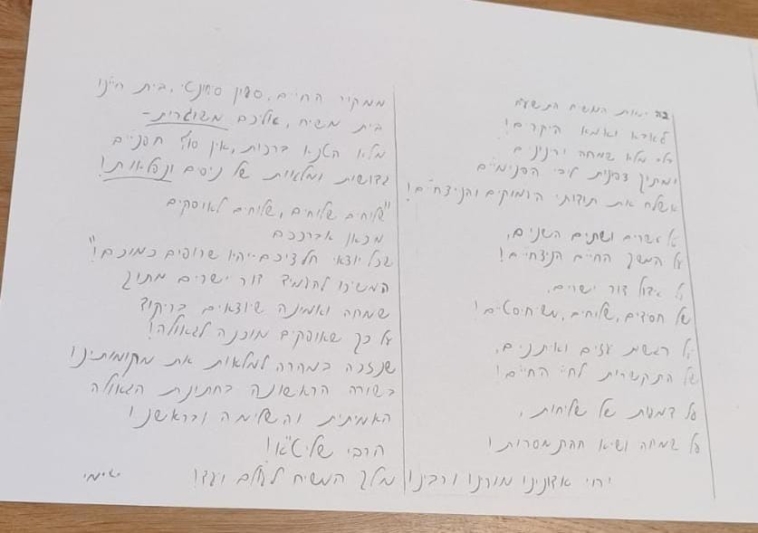 ימות המשיח התשע
לאבא ואמא היקרים!
מלא שמחה ורנינים
ומתוך צפונות ליבי הפנימיים
אשלח את תודותי העמוקים והניצחיים!
על עשרים ושתים השנים,
על המשך החיים הניצחיים!
על גידול דור ישרים,
של חסדים, שליחים, משיחיסטים!
על רגשות עזים ואיתנים,
של התקשרות לחי החיים!
על דמעות של שליחות,
על שמחה ושיא ההתמסרות!
ממקור החיים, סעווען סעוונטי, בית חיינו
בית משיח, אליכם משוגרית-
מלא הטנא ברכות, אין סוף חפניים
גדושות ומלאות של ניסים ונפלאות!
"שלוחים שלוחים, שלוחים לאוסקים
מכאן אברככם
שכל יוצאי חלציכם יהיו שרופים כמוכם!"
המשיכו להעמיד דור ישרים מתוך
שמחה ואמינה שיוצאים בריקוד
על כך שאופקים מוכנה לגאולה!
שנזכה במהרה למלאות את מקומותינו
בשורה הראשונה בחתונת הגאולה
האמיתית והשלימה ובראשנו
הרבי שליט"א!
יחי אדונינו מורנו ורבינו מלך המשיח לעולם ועד!